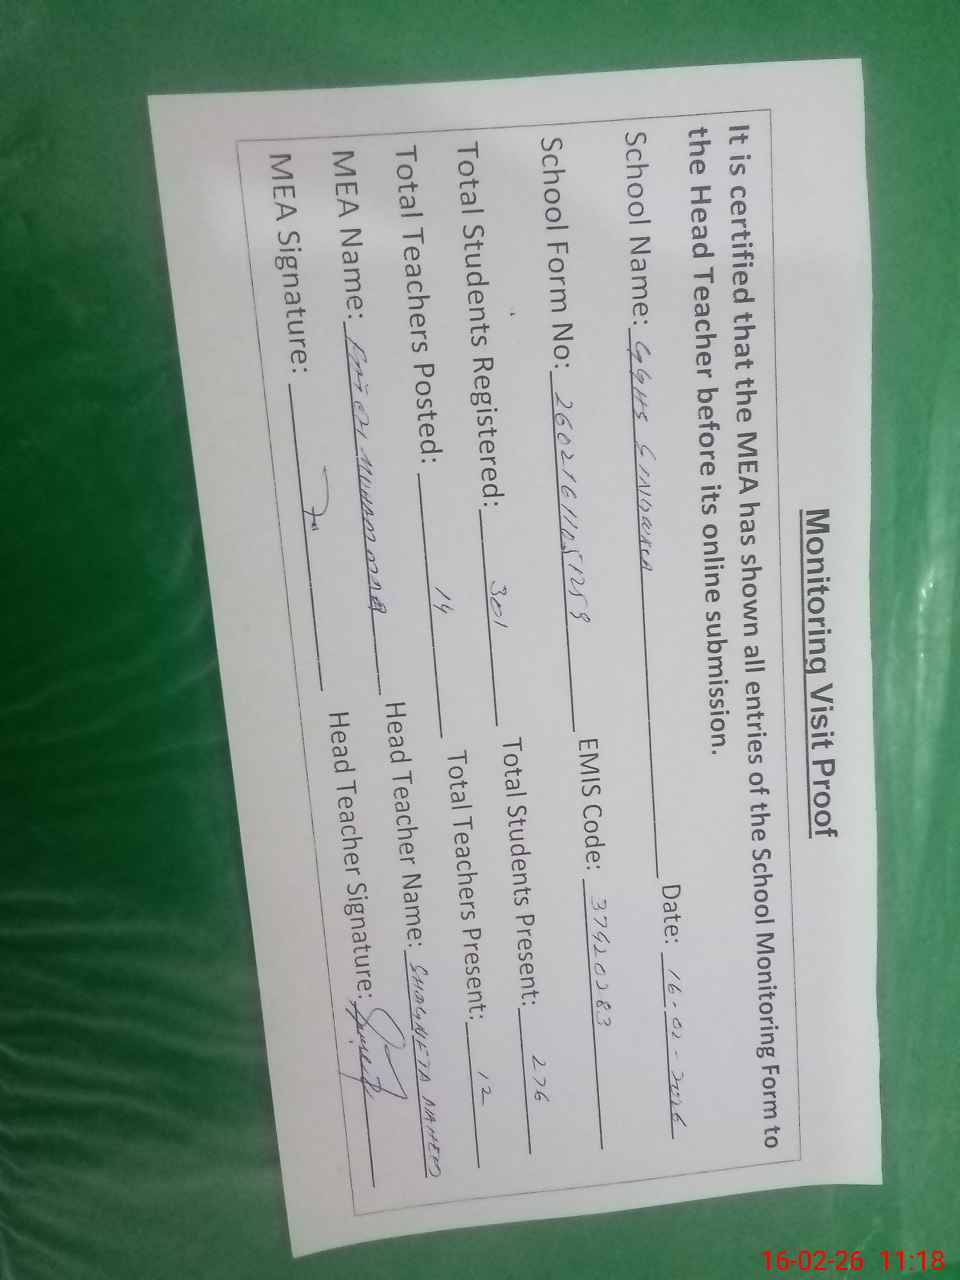 Monitoring Visit Proof
It is certified that the MEA has shown all entries of the School Monitoring Form to
the Head Teacher before its online submission.
School Name: GGHS Date: 16-02-2026
School Form No: EMIS Code: 37420283
Total Students Registered: 301 Total Students Present: 276
Total Teachers Posted: 14 Total Teachers Present: 12
MEA Name: MUHAMMAD Head Teacher Name: SHAGUFTA NAHEED
MEA Signature: Head Teacher Signature:
16-02-26 11:18